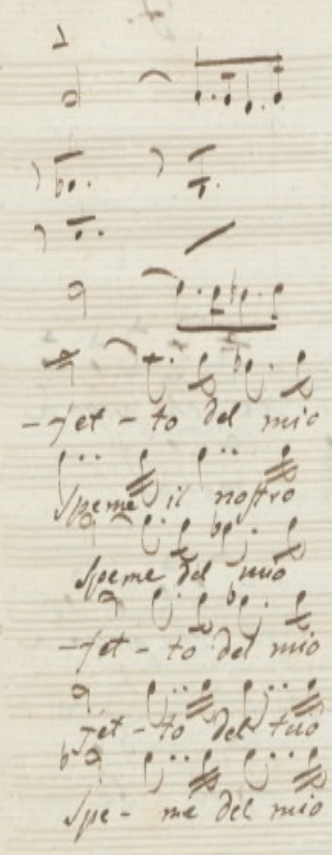 --fet-to del mio
speme il nostro
speme del mio
-fet-to del mio
fet-to del tuo
spe-me del mio